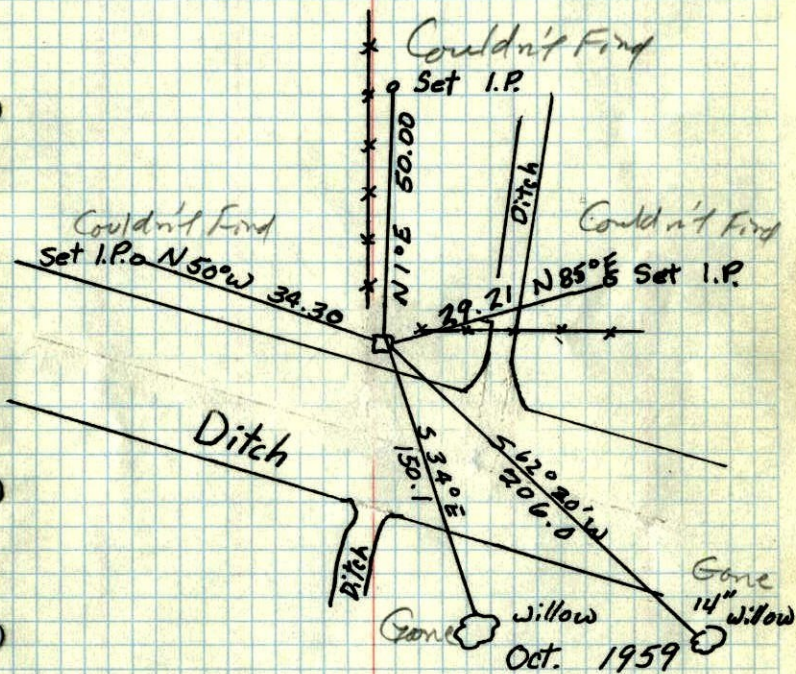 Couldn't Find
Set I.P.
N 1° E 50.00
Ditch
Couldn't Find
Set I.P.
N 50° W 34.30
Couldn't Find
N 85° E
Set I.P.
29.21
Ditch
S 34° E
150.1
S 62° 20' W
206.0
Ditch
Gone
willow
Gone
14" willow
Oct. 1959